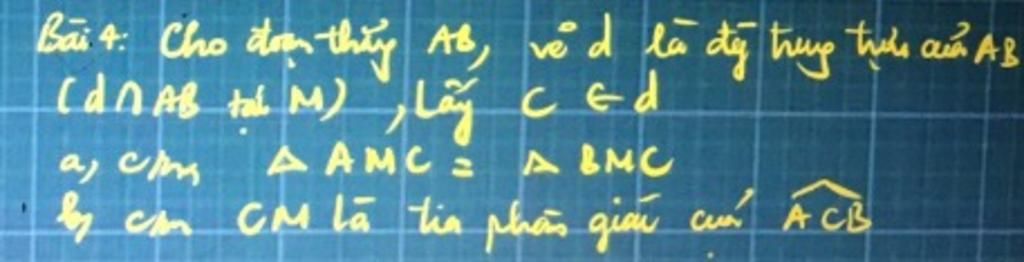 Bài 4: Cho đoạn thẳng AB, vẽ d là đg trung trực của AB
(d ∩ AB tại M), Lấy C ∈ d
a, c/m Δ AMC = Δ BMC
b, c/m CM là tia phân giác của \widehat{ACB}